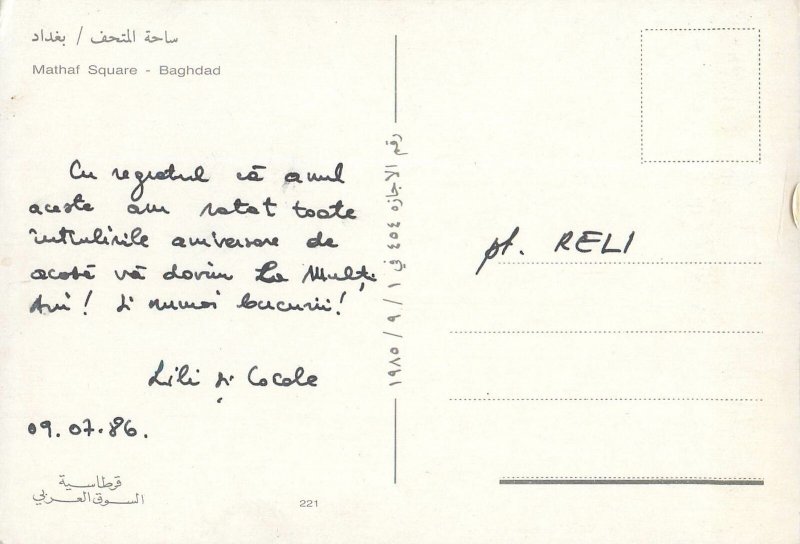 ساحة المتحف / بغداد
Mathaf Square - Baghdad
Cu regretul că anul
aceste am ratat toate
întîlnirile aniversare de
acasă vă dorim La Mulți
Ani! Și numai bucurii!
Lili și Cocole
09.07.86.
قرطاسية
السوق العربي
221
رقم الاجازه ٤٥٤ في ١ / ٩ / ١٩٨٥
pt. RELI